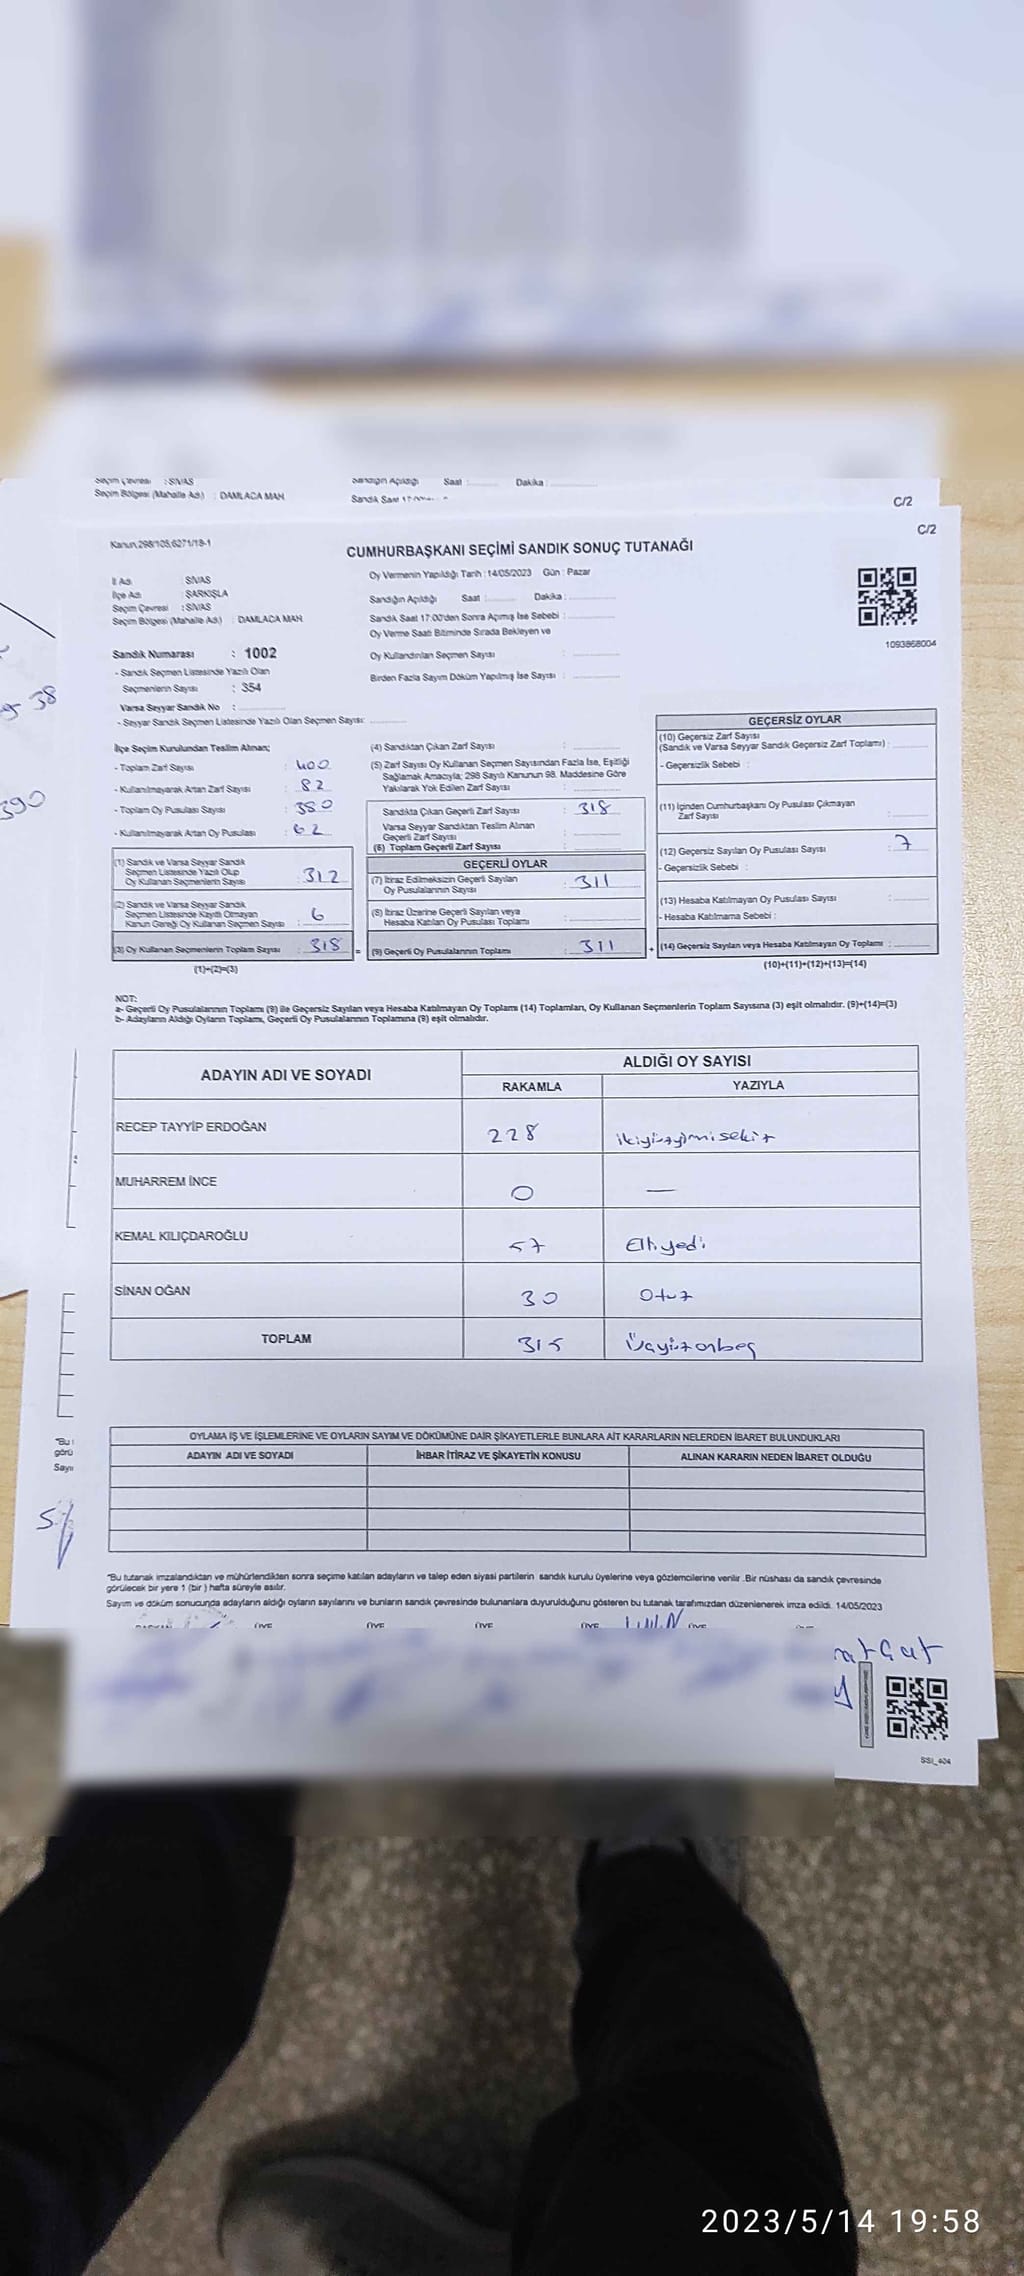 Seçim Çevresi : SİVAS
Seçim Bölgesi (Mahalle Adı) : DAMLACA MAH.
Sandığın Açıldığı Saat : Dakika :
Sandık Saat 17:00
C/2
C/2
Kanun,298/105,6271/18-1
CUMHURBAŞKANI SEÇİMİ SANDIK SONUÇ TUTANAĞI
İl Adı : SİVAS
İlçe Adı : ŞARKIŞLA
Seçim Çevresi : SİVAS
Seçim Bölgesi (Mahalle Adı) : DAMLACA MAH.
Oy Vermenin Yapıldığı Tarih : 14/05/2023 Gün : Pazar
Sandığın Açıldığı Saat : Dakika :
Sandık Saat 17:00'den Sonra Açımış İse Sebebi :
Oy Verme Saati Bitiminde Sırada Bekleyen ve
Oy Kullandırılan Seçmen Sayısı :
Birden Fazla Sayım Döküm Yapılmış İse Sayısı :
1093868004
Sandık Numarası : 1002
- Sandık Seçmen Listesinde Yazılı Olan
Seçmenlerin Sayısı : 354
Varsa Seyyar Sandık No :
- Seyyar Sandık Seçmen Listesinde Yazılı Olan Seçmen Sayısı:
38
390
İlçe Seçim Kurulundan Teslim Alınan;
- Toplam Zarf Sayısı : 400
- Kullanılmayarak Artan Zarf Sayısı : 82
- Toplam Oy Pusulası Sayısı : 380
- Kullanılmayarak Artan Oy Pusulası : 62
(1) Sandık ve Varsa Seyyar Sandık
Seçmen Listesinde Yazılı Olup
Oy Kullanan Seçmenlerin Sayısı : 312
(2) Sandık ve Varsa Seyyar Sandık
Seçmen Listesinde Kayıtlı Olmayan
Kanun Gereği Oy Kullanan Seçmen Sayısı : 6
(3) Oy Kullanan Seçmenlerin Toplam Sayısı : 318
(1)+(2)=(3)
(4) Sandıktan Çıkan Zarf Sayısı :
(5) Zarf Sayısı Oy Kullanan Seçmen Sayısından Fazla İse, Eşitliği
Sağlamak Amacıyla; 298 Sayılı Kanunun 98. Maddesine Göre
Yakılarak Yok Edilen Zarf Sayısı :
Sandıkta Çıkan Geçerli Zarf Sayısı : 318
Varsa Seyyar Sandıktan Teslim Alınan
Geçerli Zarf Sayısı :
(6) Toplam Geçerli Zarf Sayısı :
GEÇERLİ OYLAR
(7) İtiraz Edilmeksizin Geçerli Sayılan
Oy Pusulalarının Sayısı : 311
(8) İtiraz Üzerine Geçerli Sayılan veya
Hesaba Katılan Oy Pusulası Toplamı :
= (9) Geçerli Oy Pusulalarının Toplamı : 311
GEÇERSİZ OYLAR
(10) Geçersiz Zarf Sayısı
(Sandık ve Varsa Seyyar Sandık Geçersiz Zarf Toplamı) :
- Geçersizlik Sebebi :
(11) İçinden Cumhurbaşkanı Oy Pusulası Çıkmayan
Zarf Sayısı :
(12) Geçersiz Sayılan Oy Pusulası Sayısı : 7
- Geçersizlik Sebebi :
(13) Hesaba Katılmayan Oy Pusulası Sayısı :
- Hesaba Katılmama Sebebi :
+ (14) Geçersiz Sayılan veya Hesaba Katılmayan Oy Toplamı :
(10)+(11)+(12)+(13)=(14)
NOT:
a- Geçerli Oy Pusulalarının Toplamı (9) ile Geçersiz Sayılan veya Hesaba Katılmayan Oy Toplamı (14) Toplamları, Oy Kullanan Seçmenlerin Toplam Sayısına (3) eşit olmalıdır. (9)+(14)=(3)
b- Adayların Aldığı Oyların Toplamı, Geçerli Oy Pusulalarının Toplamına (9) eşit olmalıdır.
ADAYIN ADI VE SOYADI
ALDIĞI OY SAYISI
RAKAMLA YAZIYLA
RECEP TAYYİP ERDOĞAN 228 ikiyüzyirmisekiz
MUHARREM İNCE 0 —
KEMAL KILIÇDAROĞLU 57 Elliyedi
SİNAN OĞAN 30 Otuz
TOPLAM 315 Üçyüzonbeş
OYLAMA İŞ VE İŞLEMLERİNE VE OYLARIN SAYIM VE DÖKÜMÜNE DAİR ŞİKAYETLERLE BUNLARA AİT KARARLARIN NELERDEN İBARET BULUNDUKLARI
ADAYIN ADI VE SOYADI İHBAR İTİRAZ VE ŞİKAYETİN KONUSU ALINAN KARARIN NEDEN İBARET OLDUĞU
"Bu
görü
Sayı
"Bu tutanak imzalandıktan ve mühürlendikten sonra seçime katılan adayların ve talep eden siyasi partilerin sandık kurulu üyelerine veya gözlemcilerine verilir .Bir nüshası da sandık çevresinde
görülecek bir yere 1 (bir ) hafta süreyle asılır.
Sayım ve döküm sonucunda adayların aldığı oyların sayılarını ve bunların sandık çevresinde bulunanlara duyurulduğunu gösteren bu tutanak tarafımızdan düzenlenerek imza edildi. 14/05/2023
BAŞKAN ÜYE ÜYE ÜYE ÜYE ÜYE
SSI_404
2023/5/14 19:58